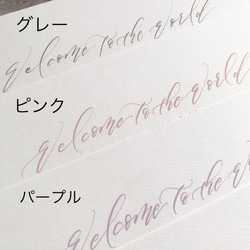 グレー
Welcome to the World
ピンク
Welcome to the World
パープル
Welcome to the W